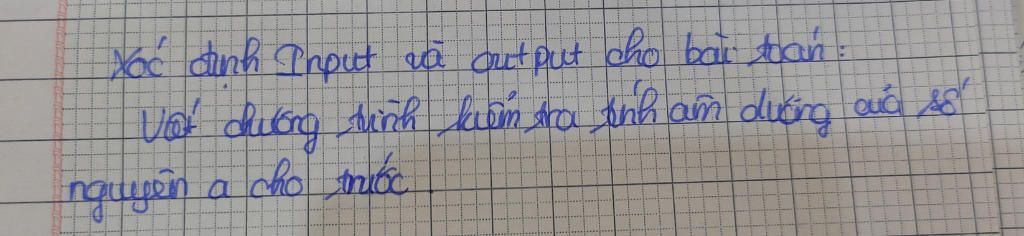 Xác định Input và output cho bài toán:
Viết chương trình kiểm tra tính âm dương của số
nguyên a cho trước